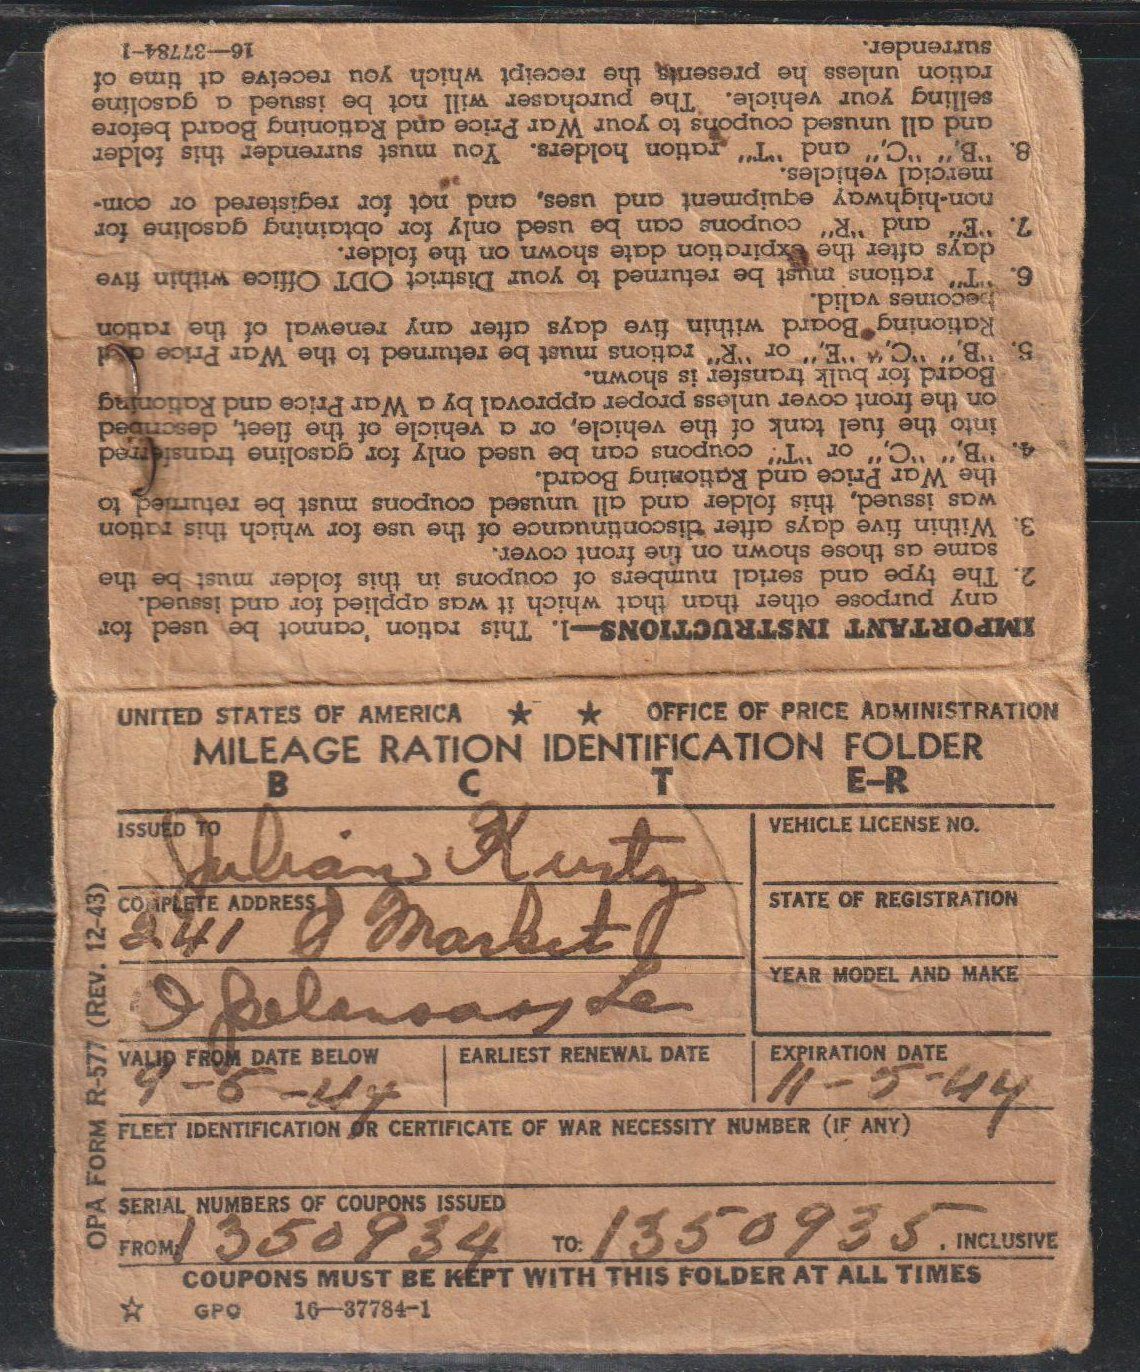 IMPORTANT INSTRUCTIONS—1. This ration cannot be used for
any purpose other than that which it was applied for and issued.
2. The type and serial numbers of coupons in this folder must be the
same as those shown on the front cover.
3. Within five days after discontinuance of the use for which this ration
was issued, this folder and all unused coupons must be returned to
the War Price and Rationing Board.
4. "B," "C," or "T" coupons can be used only for gasoline transferred
into the fuel tank of the vehicle, or a vehicle of the fleet, described
on the front cover unless proper approval by a War Price and Rationing
Board for bulk transfer is shown.
5. "B," "C," "E," or "R" rations must be returned to the War Price and
Rationing Board within five days after any renewal of the ration
becomes valid.
6. "T" rations must be returned to your District ODT Office within five
days after the expiration date shown on the folder.
7. "E" and "R" coupons can be used only for obtaining gasoline for
non-highway equipment and uses, and not for registered or com-
mercial vehicles.
8. "B," "C," and "T" ration holders. You must surrender this folder
and all unused coupons to your War Price and Rationing Board before
selling your vehicle. The purchaser will not be issued a gasoline
ration unless he presents the receipt which you receive at time of
surrender.
16—37784-1
UNITED STATES OF AMERICA ★ ★ OFFICE OF PRICE ADMINISTRATION
MILEAGE RATION IDENTIFICATION FOLDER
B C T E-R
ISSUED TO
Julian Kurtz
VEHICLE LICENSE NO.
COMPLETE ADDRESS
241 S Market
STATE OF REGISTRATION
Opelousas, La
YEAR MODEL AND MAKE
VALID FROM DATE BELOW
9-5-44
EARLIEST RENEWAL DATE
EXPIRATION DATE
11-5-44
FLEET IDENTIFICATION OR CERTIFICATE OF WAR NECESSITY NUMBER (IF ANY)
SERIAL NUMBERS OF COUPONS ISSUED
FROM: 1350934 TO: 1350935, INCLUSIVE
COUPONS MUST BE KEPT WITH THIS FOLDER AT ALL TIMES
☆ GPO 16—37784-1
OPA FORM R-577 (REV. 12-43)